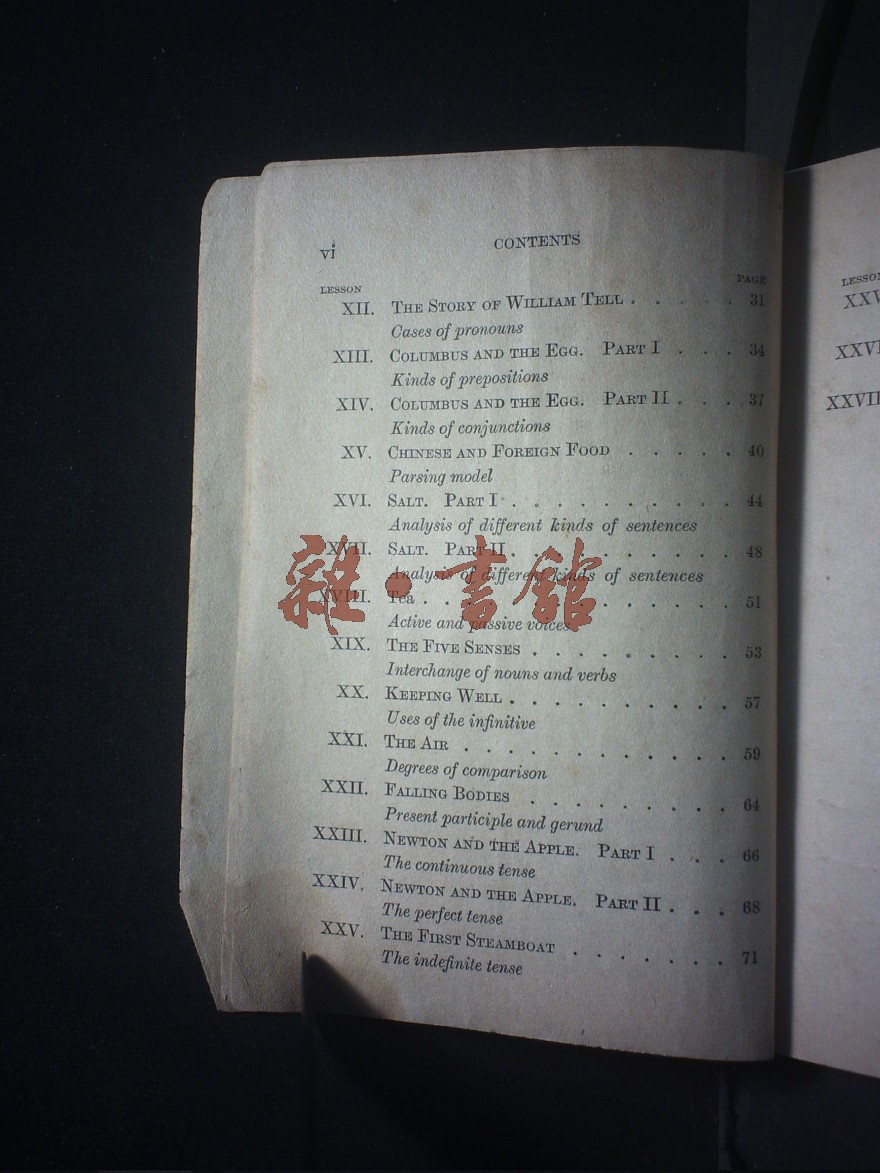 vi
CONTENTS
LESSON
PAGE
XII. THE STORY OF WILLIAM TELL . . . . . 31
Cases of pronouns
XIII. COLUMBUS AND THE EGG. PART I . . . 34
Kinds of prepositions
XIV. COLUMBUS AND THE EGG. PART II . . . 37
Kinds of conjunctions
XV. CHINESE AND FOREIGN FOOD . . . . . 40
Parsing model
XVI. SALT. PART I . . . . . . . . . . 44
Analysis of different kinds of sentences
XVII. SALT. PART II . . . . . . . . . . 48
Analysis of different kinds of sentences
XVIII. TEA . . . . . . . . . . . . . 51
Active and passive voices
XIX. THE FIVE SENSES . . . . . . . . . 53
Interchange of nouns and verbs
XX. KEEPING WELL . . . . . . . . . . 57
Uses of the infinitive
XXI. THE AIR . . . . . . . . . . . . 59
Degrees of comparison
XXII. FALLING BODIES . . . . . . . . . 64
Present participle and gerund
XXIII. NEWTON AND THE APPLE. PART I . . . 66
The continuous tense
XXIV. NEWTON AND THE APPLE. PART II . . . 68
The perfect tense
XXV. THE FIRST STEAMBOAT . . . . . . . 71
The indefinite tense
雜·書館
LESSON
XXV
XXVI
XXVII